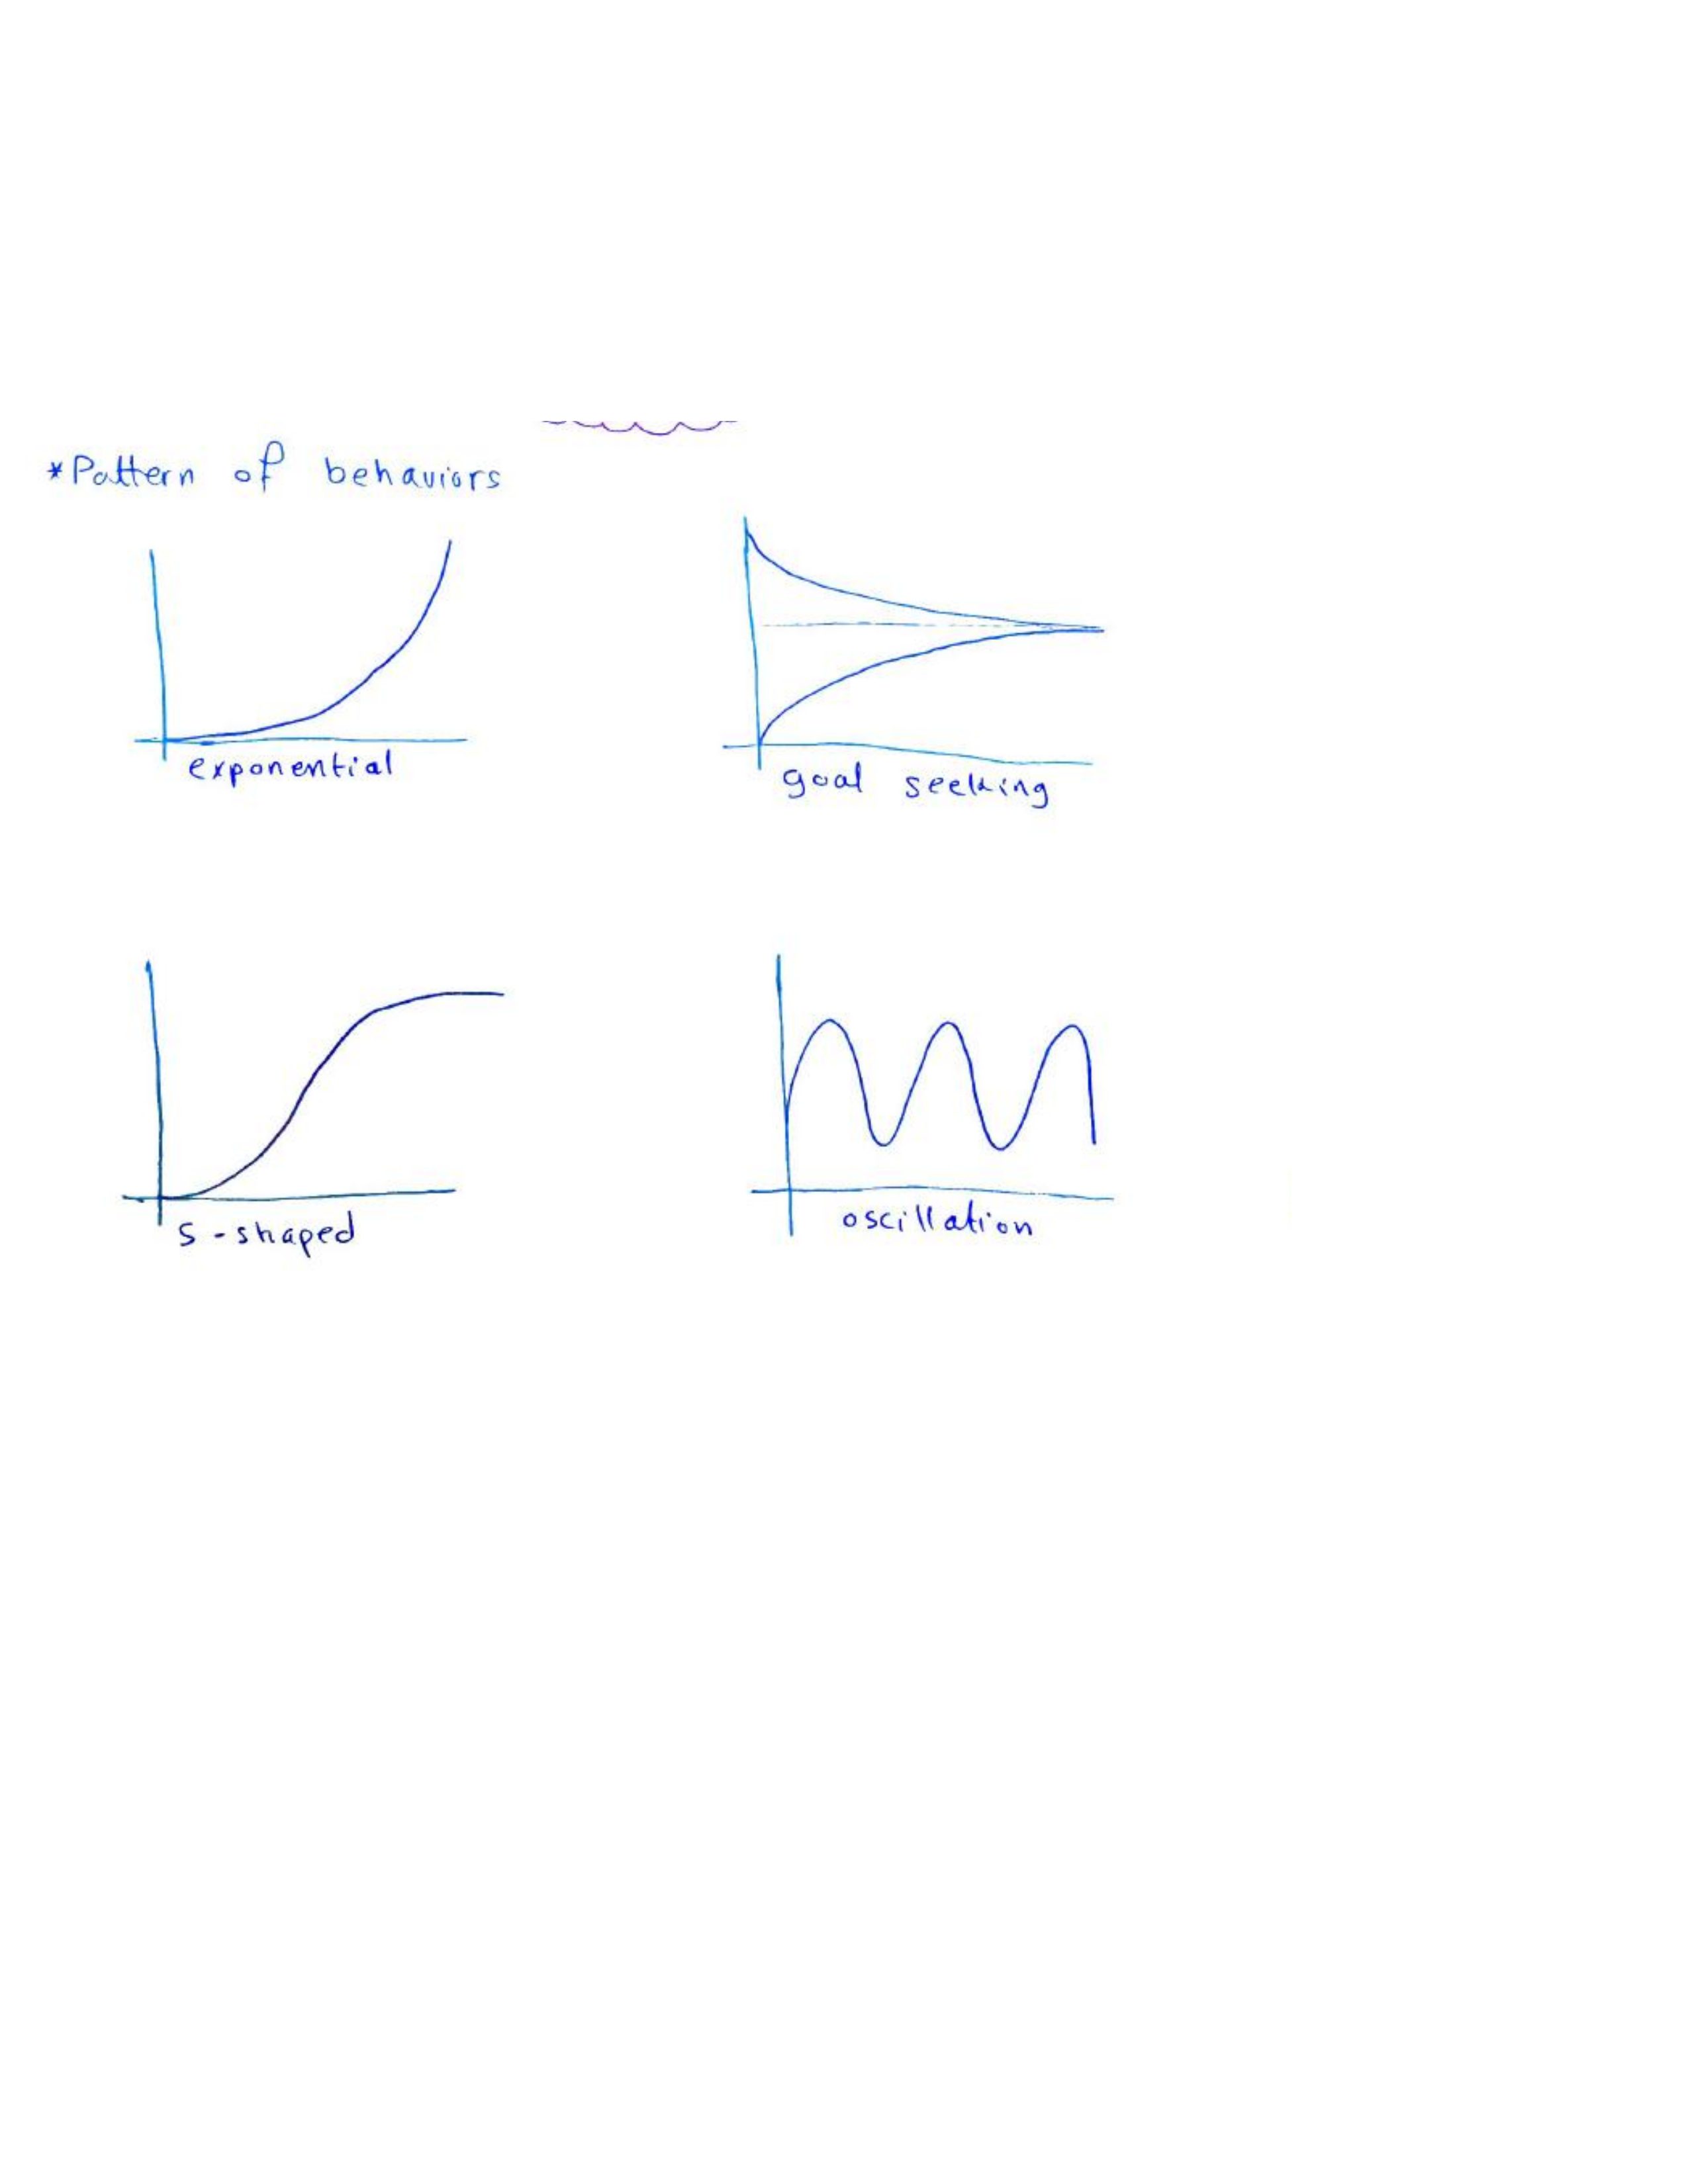 *Pattern of behaviors
exponential
goal seeking
s-shaped
oscillation